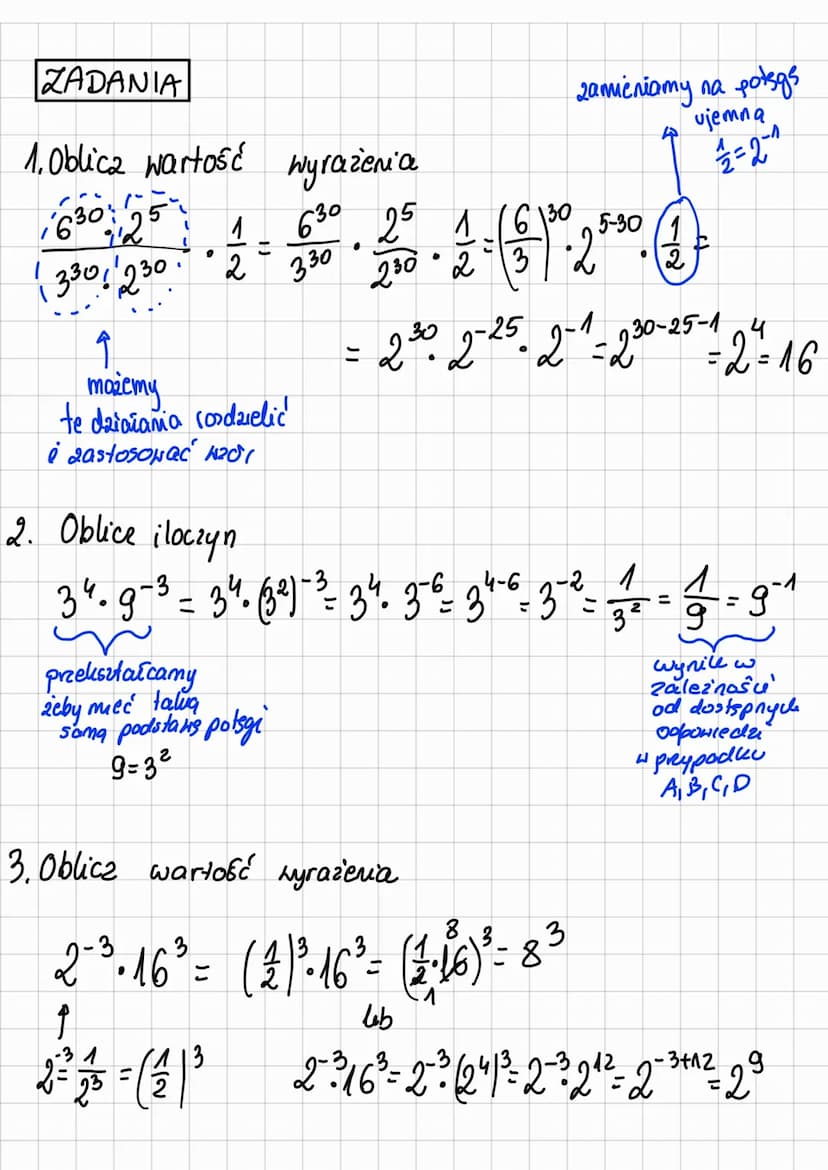 ZADANIA
zamieniamy na potęgę
ujemną
1/2 = 2^-1
1. Oblicz wartość wyrażenia
(6^30 · 2^5)/(3^30 · 2^30) · 1/2 = 6^30/3^30 · 2^5/2^30 · 1/2 = (6/3)^30 · 2^(5-30) · 1/2 =
= 2^30 · 2^-25 · 2^-1 = 2^(30-25-1) = 2^4 = 16
możemy
te działania rozdzielić
i zastosować wzór
2. Oblicz iloczyn
3^4 · 9^-3 = 3^4 · (3^2)^-3 = 3^4 · 3^-6 = 3^(4-6) = 3^-2 = 1/3^2 = 1/9 = 9^-1
przekształcamy
żeby mieć taką
samą podstawę potęgi
9 = 3^2
wynik w
zależności
od dostępnych
odpowiedzi
w przypadku
A, B, C, D
3. Oblicz wartość wyrażenia
2^-3 · 16^3 = (1/2)^3 · 16^3 = (1/2 · 16)^3 = 8^3
8
1
lub
2^-3 = 1/2^3 = (1/2)^3
2^-3 · 16^3 = 2^-3 · (2^4)^3 = 2^-3 · 2^12 = 2^(-3+12) = 2^9